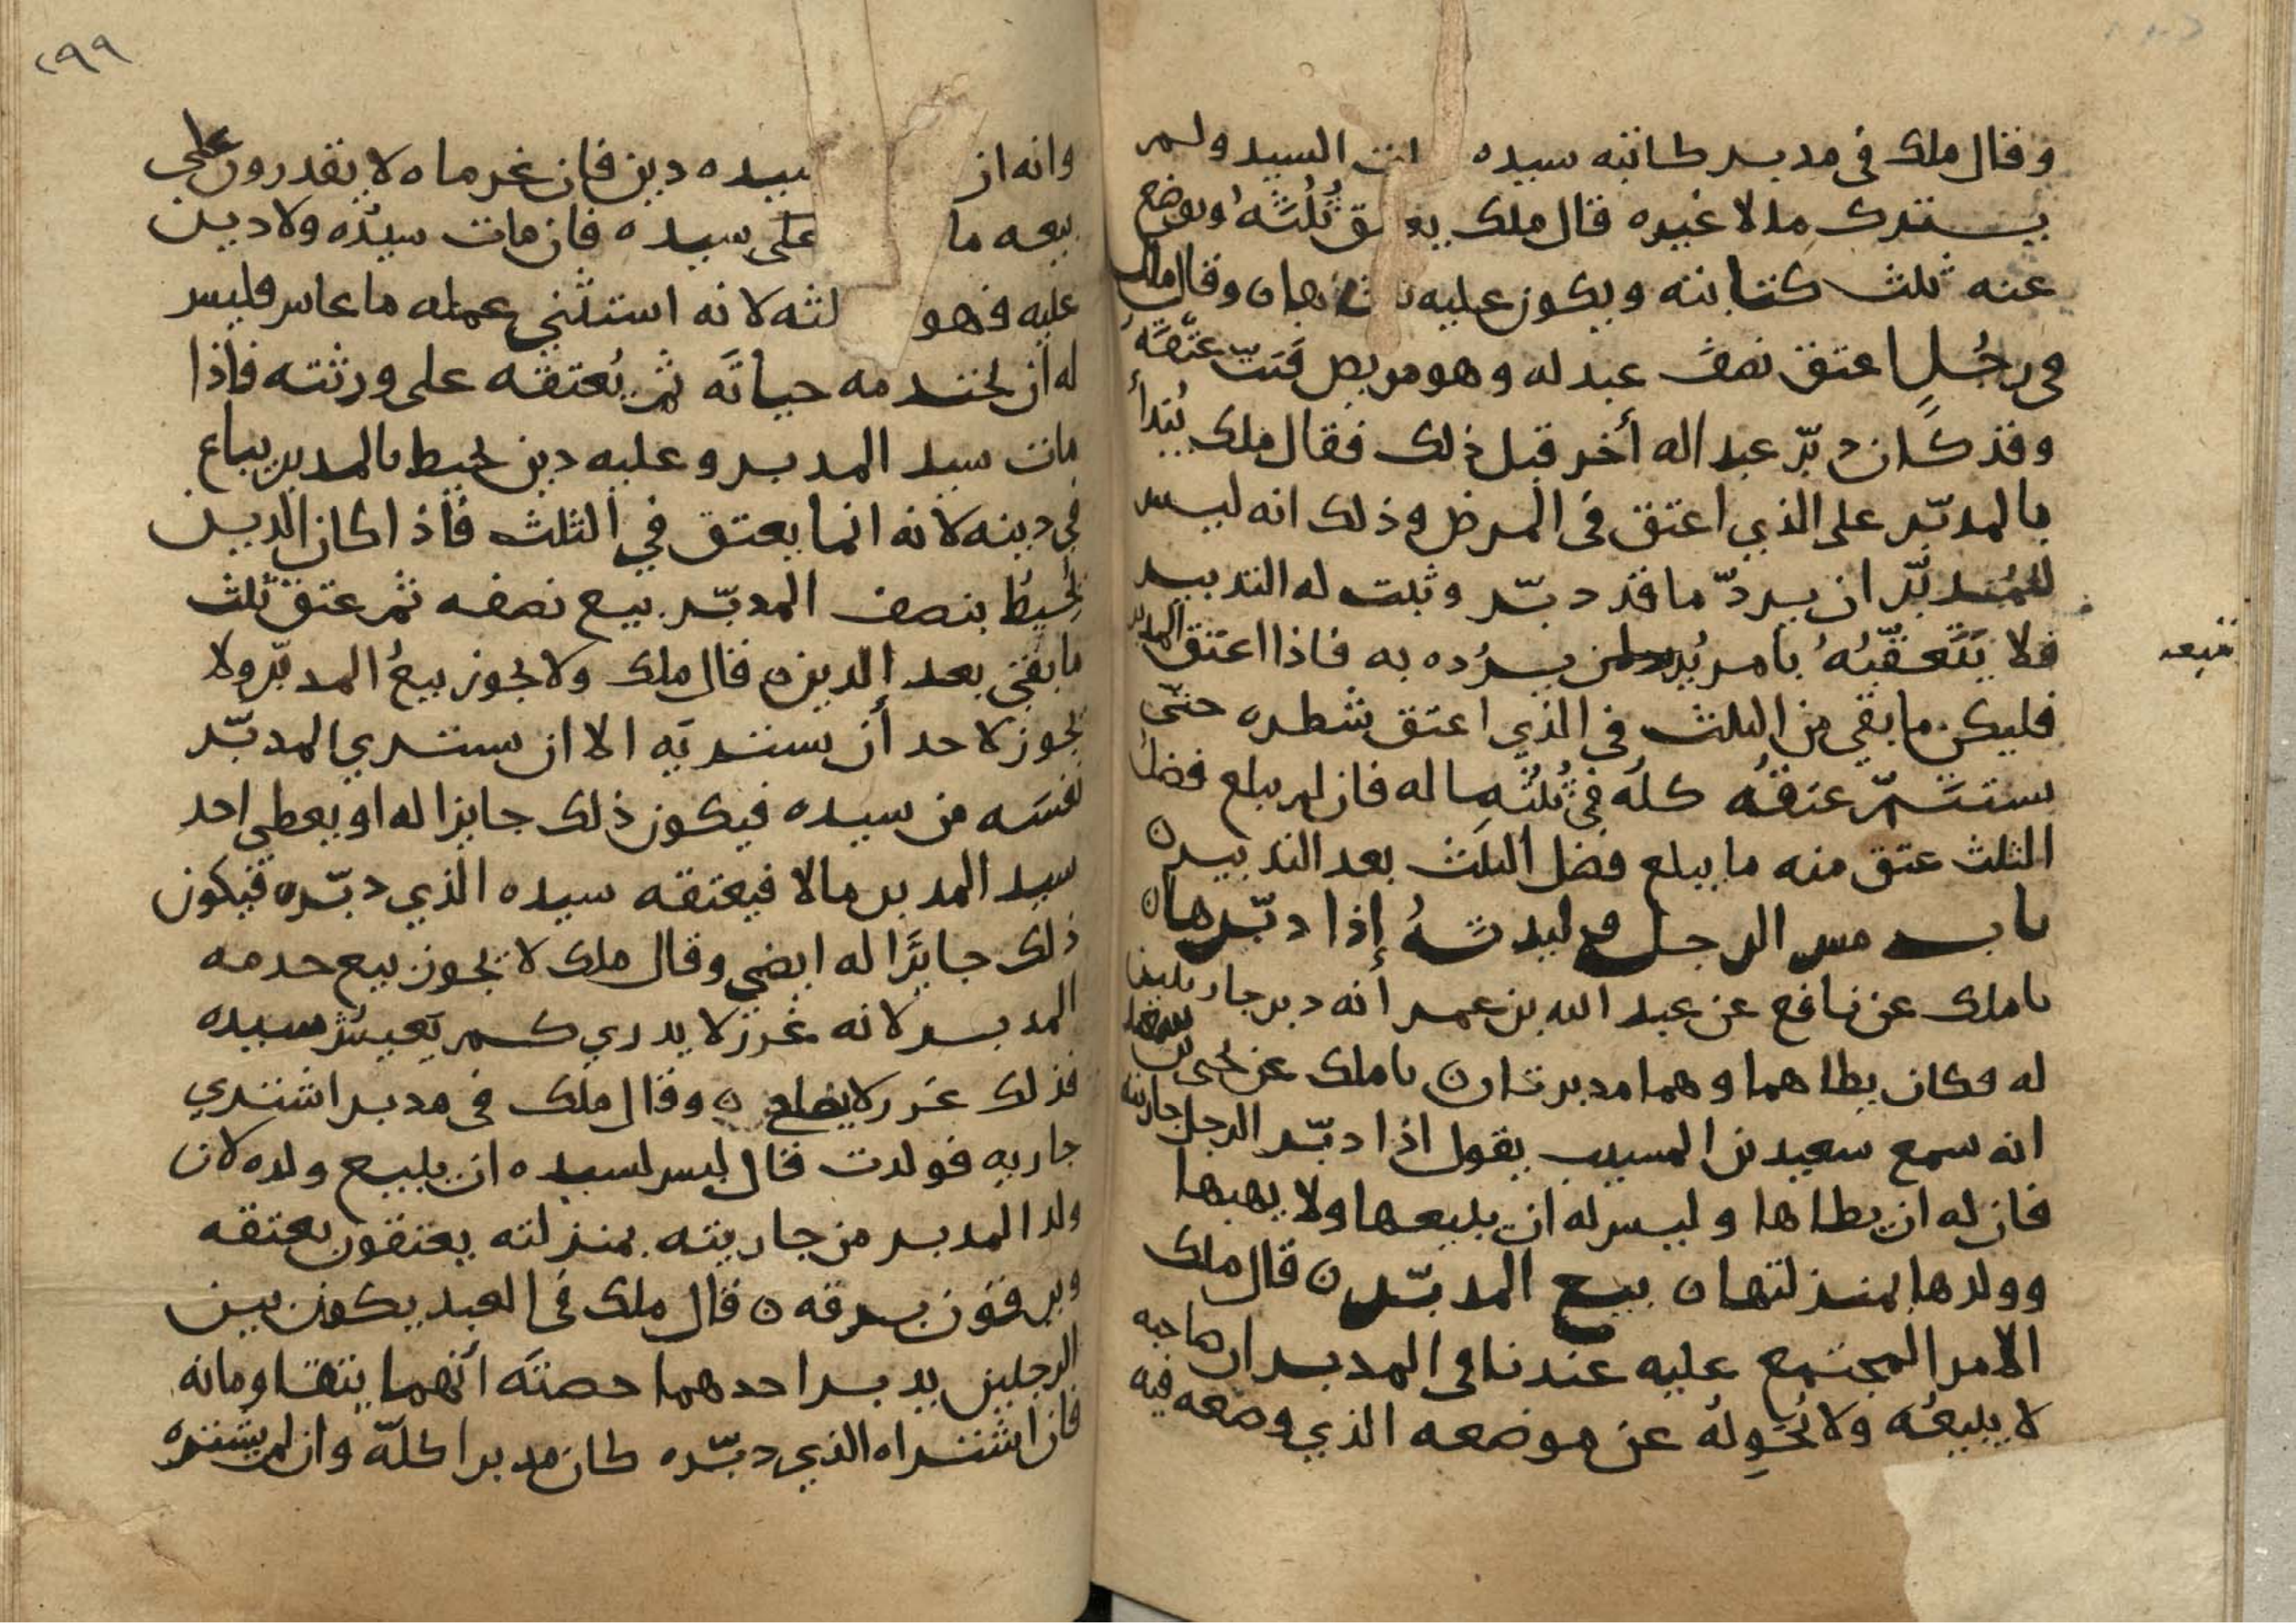 وقال ملك فى مدبر كاتبه سيده ات السيد ولم
يترك مالا غيره قال ملك يع ق ثُلُثَه ويوضع
عنه ثلث كتابته ويكون عليه ثلثاها ن وقال ملك
فى رجُلٍ اعتق نصفَ عبد له وهو مريض فَبَتّ عِتْقَهُ
وقد كان دبّر عبدا له أخر قبل ذلك فقال ملك يُبْدأُ
بالمدبّر على الذي اعتق فى المرض وذلك انه ليس
للمُدبّر ان يردّ ما قد دبّر وثبت له التدبير
فلا يَتَعقّبُهُ بامر يُرده به فاذا اعتق المدبر
فليكن ما بقى من الثلث فى الذي اعتق شطره حتى
يستتمّ عتقُه كلُه فى ثُلُثِ ماله فان لم يبلع فضل
الثلث عتق منه ما يبلع فضل الثلث بعد التدبير ن
باب مس الرجل وليدتهُ إذا دبّرها ن
ملك عن نافع عن عبد الله بن عمر أنه دبر جاريتين
له فكان يطاهما وهما مدبرتان ن ملك عن يحيى بن سعيد
انه سمع سعيد بن المسيب يقول اذا دبّر الرجل جاريته
فان له ان يطاها وليس له ان يبيعها ولا يهبها
وولدها بمنزلتها ن بيع المدبّر ن قال ملك
الامر المجتمع عليه عندنا فى المدبر ان صاحبه
لا يبيعُه ولا يُحَوِلُه عن موضعه الذي وضعه فيه
فيبعه
٢٩٩
وانه ان سيده دين فان غرماه لا يقدرون على
بيعه ما على سيده فان مات سيدُه ولا دين
عليه فهو لثه لانه استثنى عمله ما عاس فليس
له ان يخدمه حياتَه ثم يُعتقه على ورثته فاذا
مات سيد المدبر وعليه دين يحيط بالمدبر يباع
في دينه لانه انما يعتق في الثلث فاذا كان الدين
يُحيطُ بنصف المدبّر بيع نصفه ثم عتق ثلث
ما بقى بعد الدين ن قال ملك ولا يجوز بيعُ المدبّر ولا
يجوز لاحد أن يشتريَه الا ان يشتري المدبّر
نفسَه من سيده فيكون ذلك جايزا له او يعطى احد
سيد المدبر مالا فيعتقه سيده الذي دبّره فيكون
ذلك جايزًا له ايضى وقال ملك لا يجوز بيع خدمه
المدبر لانه غرر لا يدري كم يَعيشُ سيده
فذلك غرر لا يصلح ن وقال ملك فى مدبر اشتري
جاريه فولدت قال ليس لسيده ان يبيع ولده لان
ولد المدبر من جاريته بمنزلته يعتقون بعتقه
ويرقون برقه ن قال ملك فى العبد يكون بين
الرجلين يدبر احدهما حصتَه انهما يتقاومانه
فان اشتراه الذي دبّره كان مدبرا كلّه وان لم يشتره